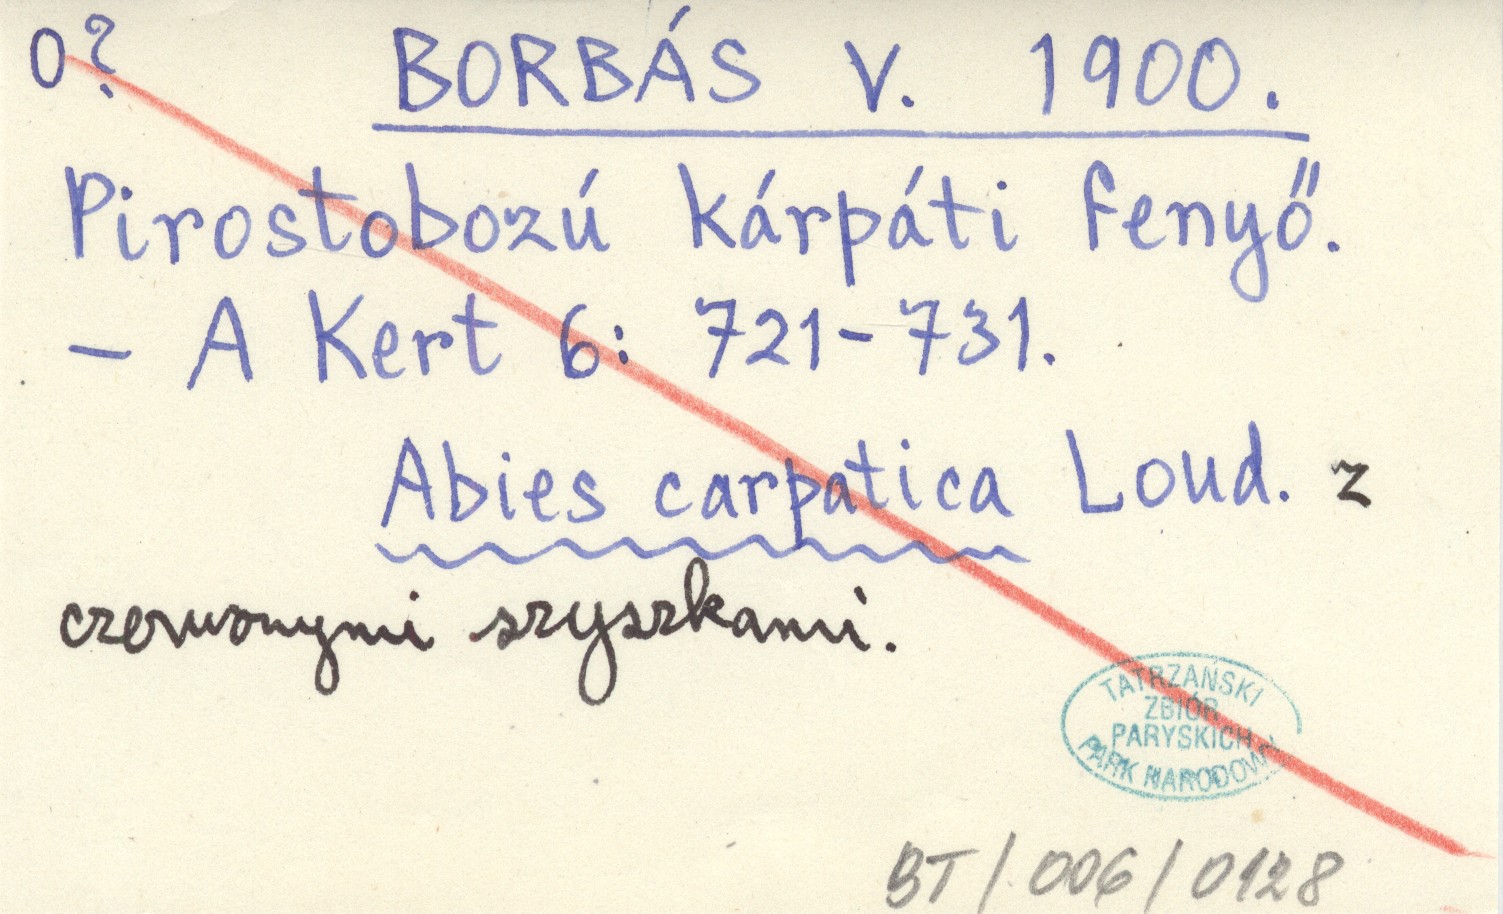 O? BORBÁS V. 1900.
Pirostobozú kárpáti fenyő.
- A Kert 6: 721-731.
Abies carpatica Loud. z
czerwonymi szyszkami.
TATRZAŃSKI
ZBIÓR
PARYSKICH
PARK NARODOWY
BT/006/0128